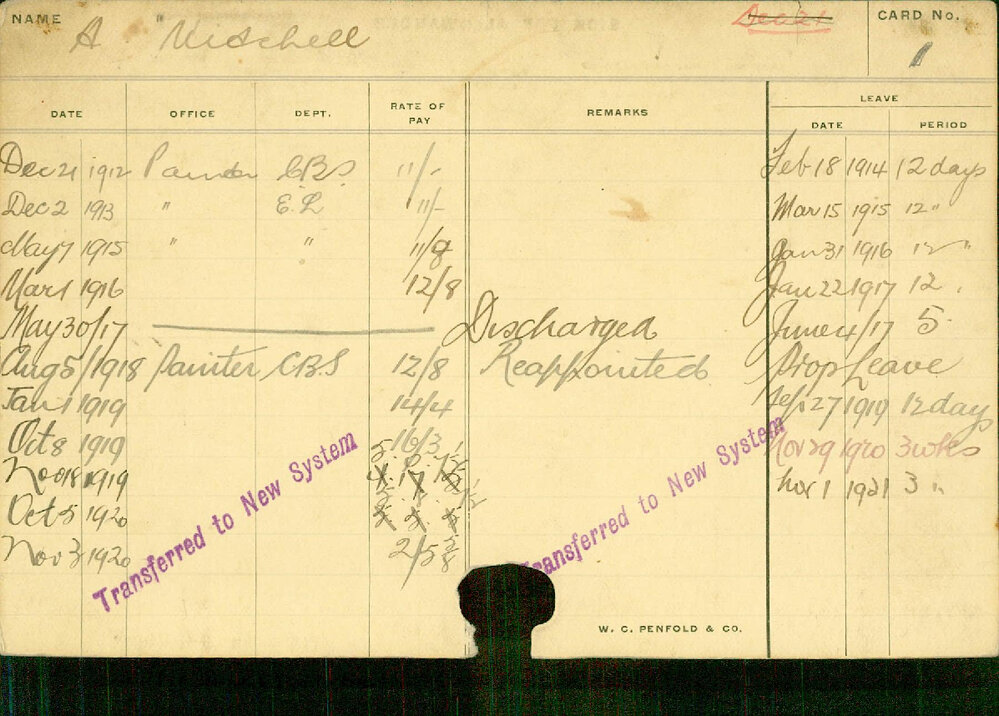 NAME A Mitchell CARD No. 1
DATE OFFICE DEPT. RATE OF PAY REMARKS LEAVE
DATE PERIOD
Dec 21 1912 Painter C.B.S 11/- Feb 18 1914 12 days
Dec 2 1913 " E.L 11/- Mar 15 1915 12 "
May 7 1915 " " 11/8 Jan 31 1916 12 "
Mar 1 1916 12/8 Jan 22 1917 12 .
May 30/17 Discharged June 4/17 5
Aug 5/1918 Painter C.B.S 12/8 Reappointed Prop Leave
Jan 1 1919 14/4 Sep 27 1919 12 days
Oct 8 1919 16/3 Nov 29 1920 3 wks
Nov 18 1919 Nov 1 1921 3 "
Oct 5 1920
Nov 3 1920
Transferred to New System
Transferred to New System
W. C. PENFOLD & CO.